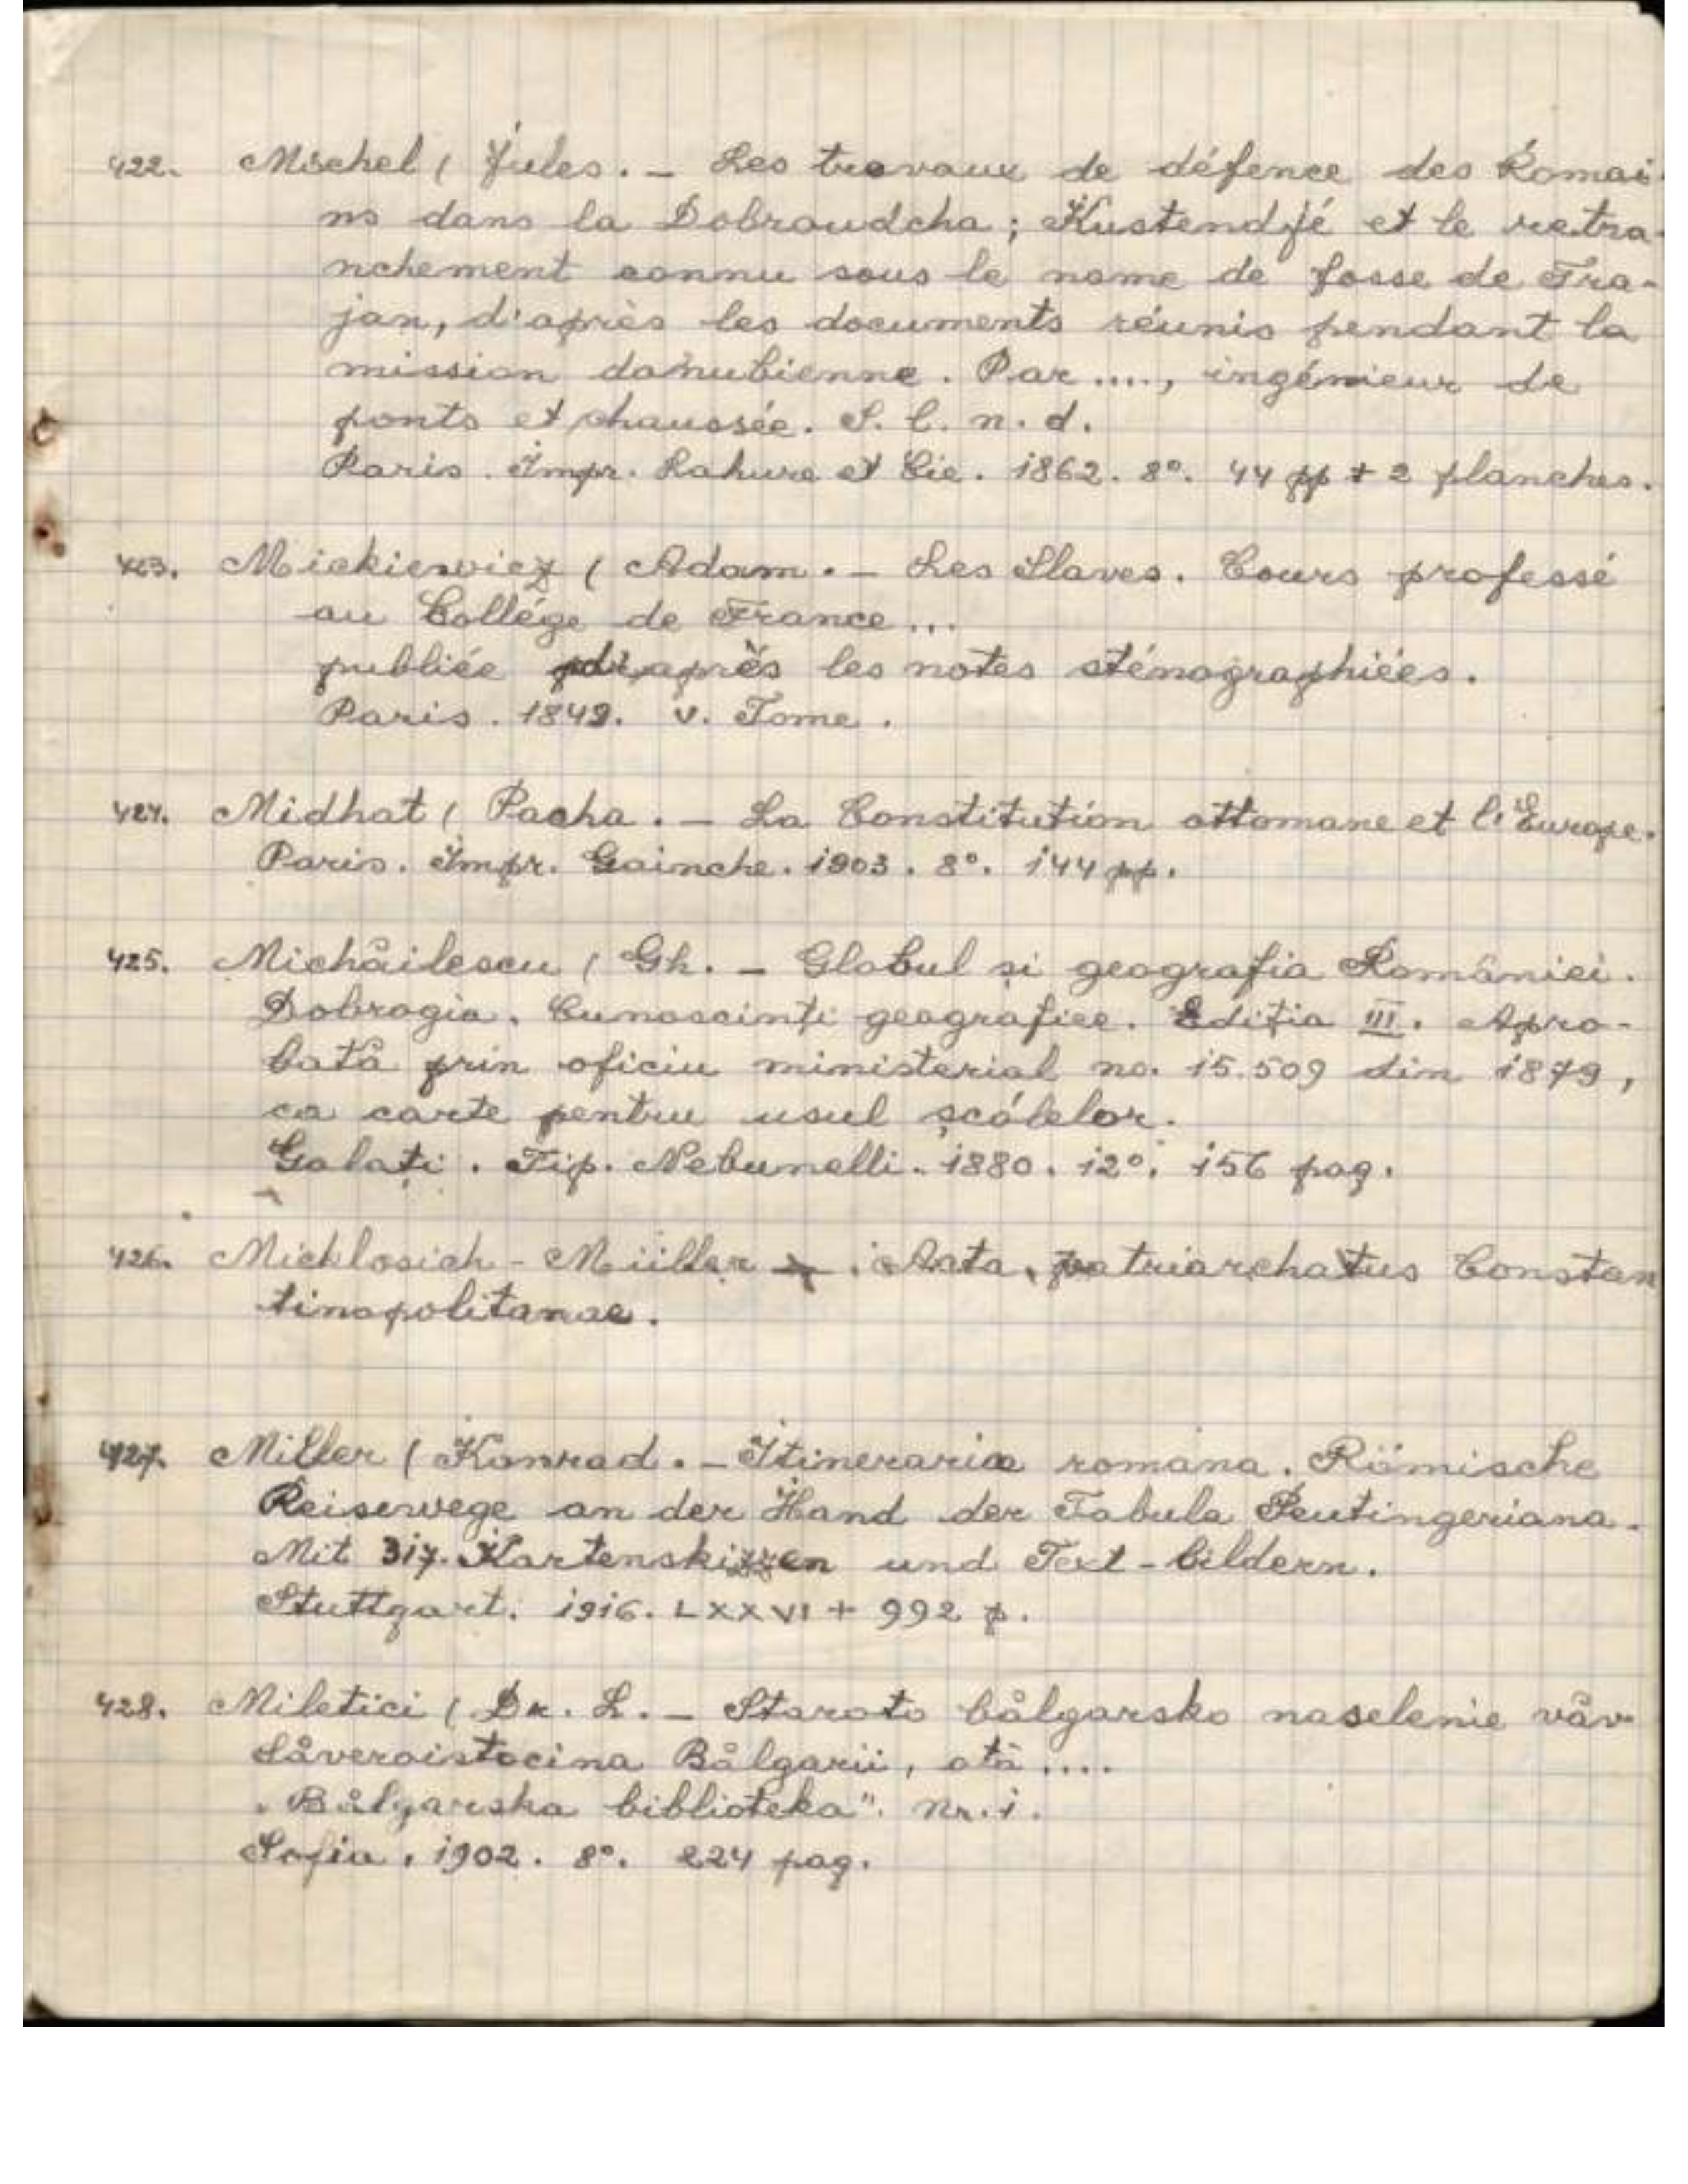 422. Michel ( Jules. — Les travaux de défence des Romai-
ns dans la Dobroudcha ; Kustendjé et le retra-
nchement connu sous le nome de fosse de Tra-
jan, d'après les documents réunis pendant la
mission danubienne. Par ...., ingénieur de
ponts et chaussée. S. l. n. d.
Paris. Impr. Lahure et Cie. 1862. 8°. 44 pp + 2 planches.
423. Mickiewicz ( Adam. — Les Slaves. Cours professé
au Collége de France ...
publiée d'après les notes sténographiées.
Paris. 1849. v. Tome.
424. Midhat ( Pacha. — La Constitution ottomane et l'Europe.
Paris. Impr. Gainche. 1903. 8°. 144 pp.
425. Michăilescu ( Gh. — Globul și geografia României.
Dobrogia. Cunoscinți geografice. Ediția III. Apro-
bată prin oficiu ministerial no. 15.509 din 1879,
ca carte pentru usul școlelor.
Galați. Tip. Nebunelli. 1880. 12°. 156 pag.
426. Micklosich - Müller . Aata patriarchatus Constan
tinopolitanae.
427. Miller ( Konrad. — Itineraria romana. Römische
Reisewege an der Hand der Tabula Peutingeriana.
Mit 317. Kartenskizzen und Text-bildern.
Stuttgart. 1916. LXXVI + 992 p.
428. Miletici ( Dr. L. — Staroto bålgarsko naselenie våv
Såveroistocina Bålgarii, otå ....
„Bålgarska biblioteka". Nr. 1.
Sofia, 1902. 8°. 224 pag.